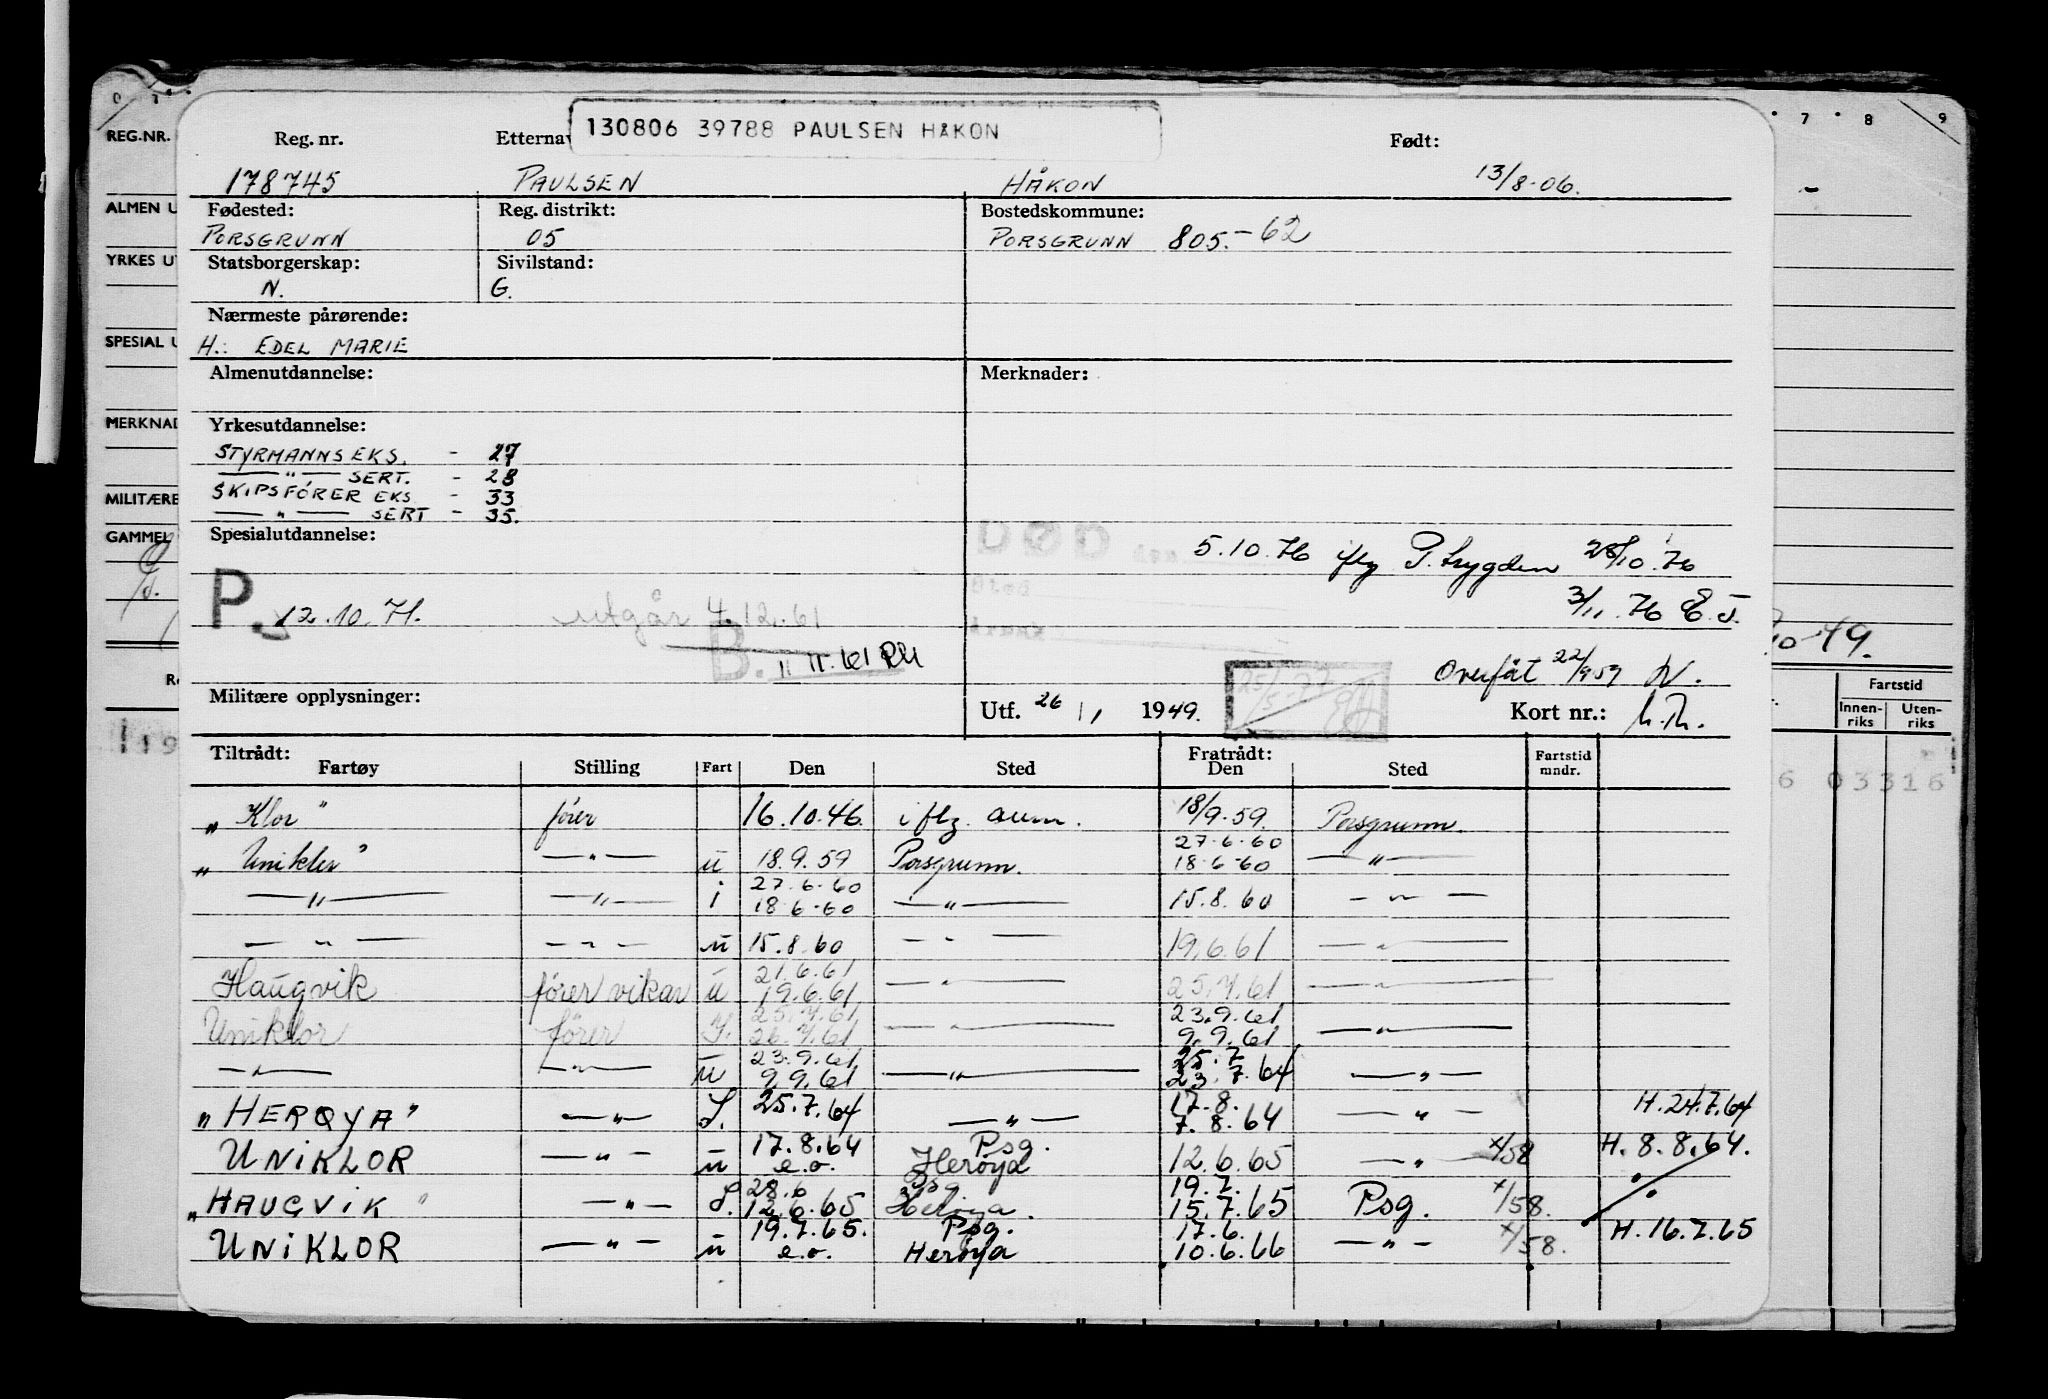 130806 39788 PAULSEN HÅKON
Reg. nr. Etterna Født:
178745 PAULSEN HÅKON 13/8-06.
Fødested: Reg. distrikt: Bostedskommune:
PORSGRUNN 05 PORSGRUNN 805.-62
Statsborgerskap: Sivilstand:
N. G.
Nærmeste pårørende:
H.: EDEL MARIE
Almenutdannelse: Merknader:
Yrkesutdannelse:
STYRMANNSEKS. - 27
—"— SERT. - 28
SKIPSFÖRER EKS - 33
—"— SERT - 35.
Spesialutdannelse:
DØD den 5.10.76 iflg P.trygden 28/10.76
Sted
3/11.76 E.J.
P. 12.10.71. utgår 4.12.61
B. 11 11.61
Overført 22/9 59
Militære opplysninger: Utf. 26/1 1949. 25/5-77 Kort nr.:
Tiltrådt: Fratrådt:
Fartøy Stilling Fart Den Sted Den Sted Fartstid mndr.
"Klor" fører 16.10.46. iflg. aum. 18/9.59. Porsgrunn.
"Uniklor" —"— u 18.9.59 Porsgrunn. 27.6.60 18.6-60 —"—
—"— —"— i 27.6.60 18.6-60 —"— 15.8.60 —"—
—"— —"— u 15.8.60 —"— 19.6.61 —"—
Haugvik fører vikar u 21.6.61 19.6.61 —"— 25.7.61 —"—
Uniklor fører 25.7.61 26.7.61 —"— 23.9.61 9.9.61 —"—
—"— —"— u 23.9.61 9.9.61 —"— 25.7 23.7.64 —"—
"HERØYA" —"— I. 25.7.64 —"— 17.8. 7.8.64 —"— H.24.7.64
UNIKLOR —"— u 17.8.64 e.o. Psg. Herøya 12.6.65 —"— x/58 H.8.8.64.
"HAUGVIK" —"— I. 28.6 12.6.65 Psg Herøya. 19.7. 15.7.65 Psg. x/58.
UNIKLOR —"— u 19.7.65. e.o. Psg. Herøya 17.6. 10.6.66 —"— x/58. H.16.7.65
REG.NR.
ALMEN U
YRKES UT
SPESIAL U
MERKNAD
MILITÆRE
GAMMEL
R
19
7 8 9
10-49.
Fartstid
Innenriks Utenriks
6 03316